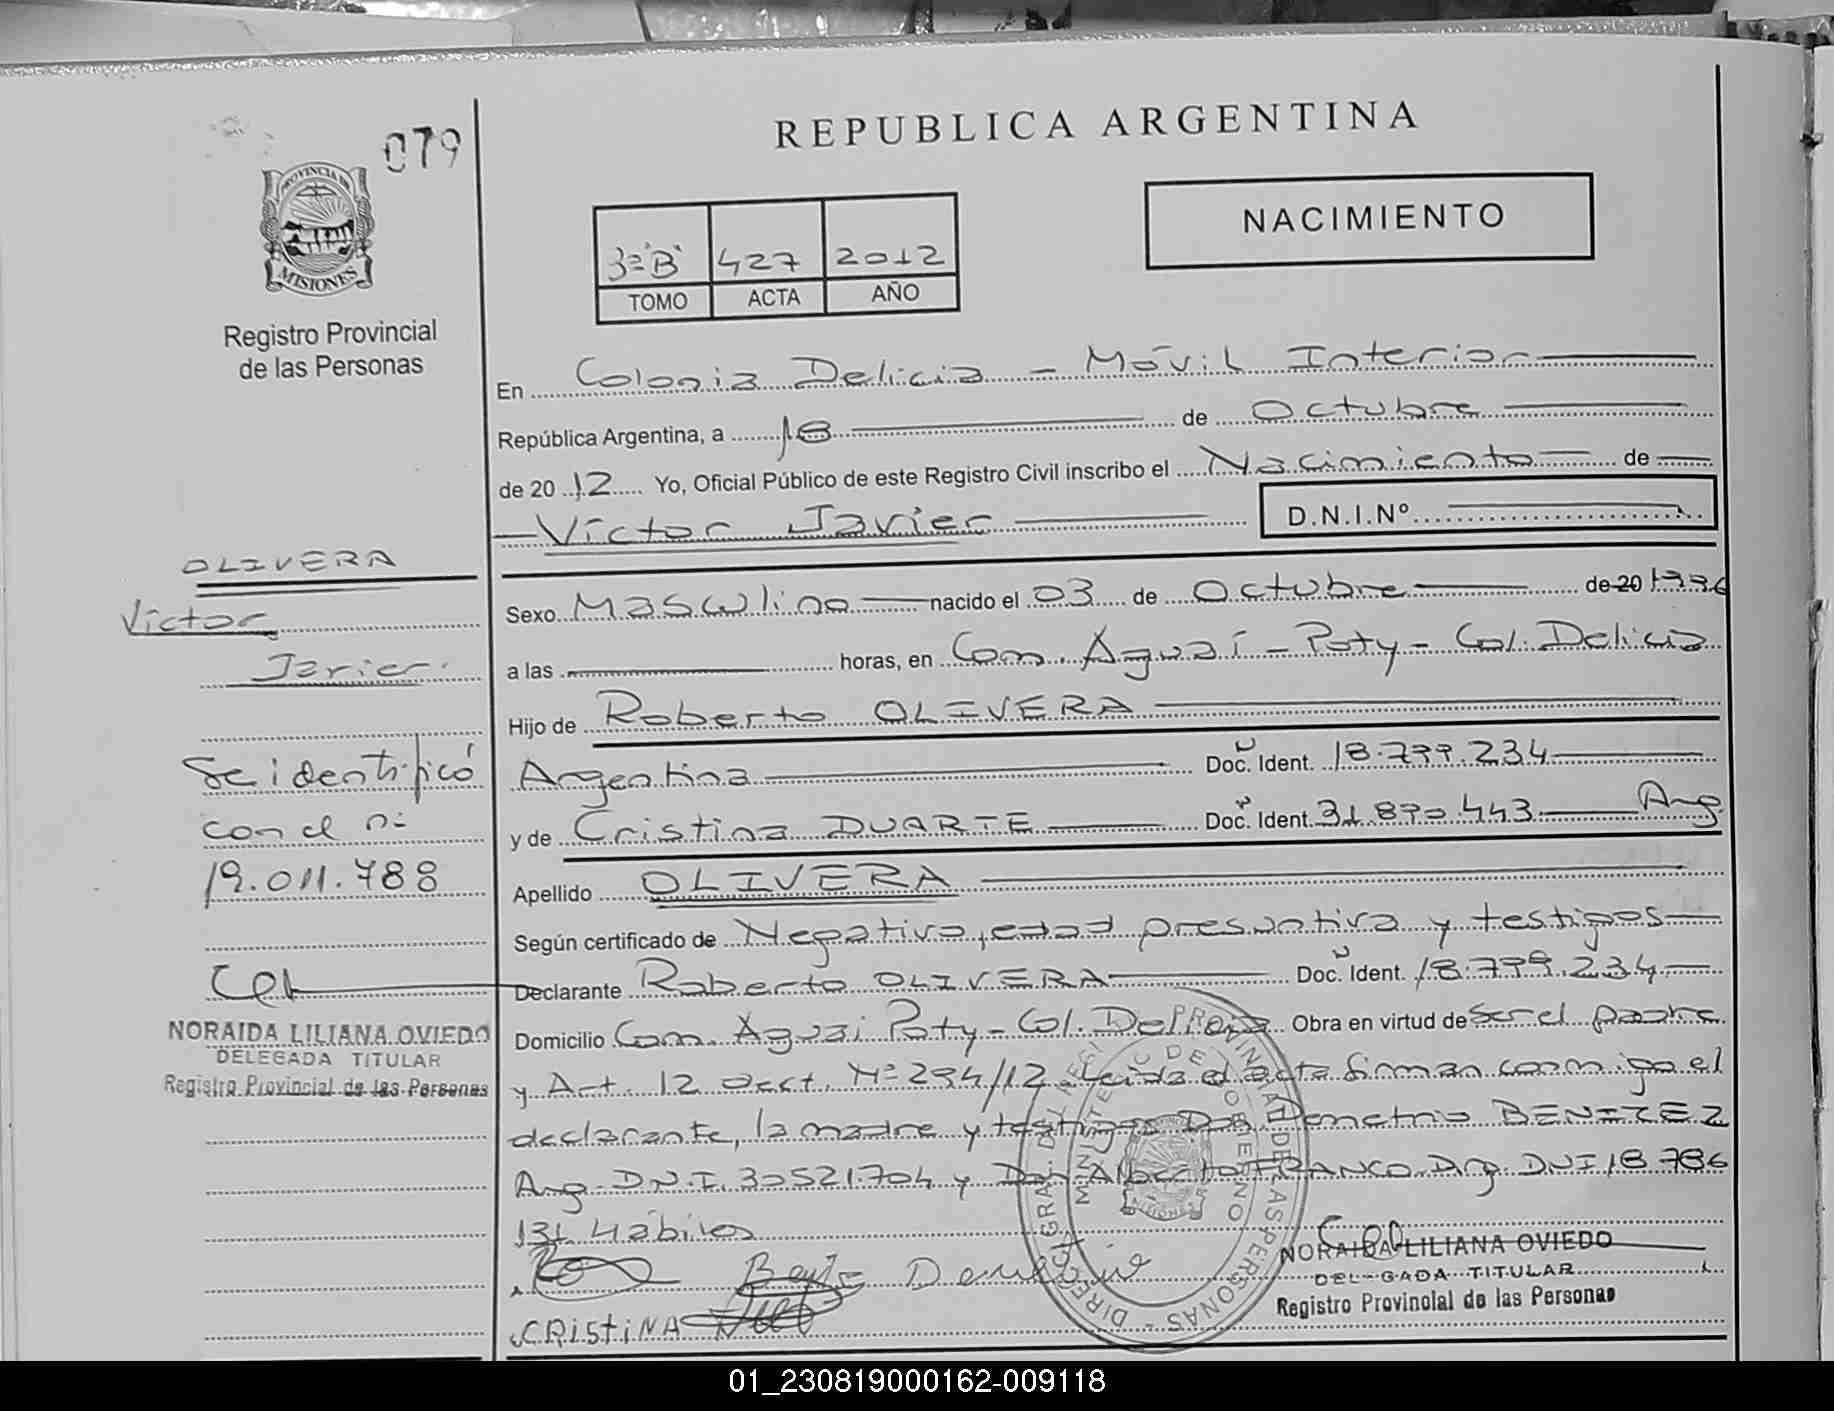 079
PROVINCIA DE
MISIONES
Registro Provincial
de las Personas
REPUBLICA ARGENTINA
NACIMIENTO
3º"B" 427 2012
TOMO ACTA AÑO
En Colonia Delicia - Móvil Interior
República Argentina, a 18 de Octubre
de 2012 Yo, Oficial Público de este Registro Civil inscribo el Nacimiento de
Víctor Javier D.N.I.Nº
OLIVERA
Víctor
Javier.
Se identificó
con el nº
19.011.788
NORAIDA LILIANA OVIEDO
DELEGADA TITULAR
Registro Provincial de las Personas
Sexo Masculino nacido el 03 de Octubre de 20 1996
a las horas, en Com. Aguaí - Poty - Col. Delicia
Hijo de Roberto OLIVERA
Argentina Doc. Ident. 18.799.234
y de Cristina DUARTE Doc. Ident. 31.870.443 Arg
Apellido OLIVERA
Según certificado de Negativa, edad presuntiva y testigos
Declarante Roberto OLIVERA Doc. Ident. 18.799.234
Domicilio Com. Aguai Poty - Col. Del Obra en virtud de ser el padre
y Art. 12 Nº 294/12. Leida el acta firman conmigo el
declarante, la madre y testigos Don Demetrio BENITEZ
Arg. D.N.I. 30521.704 y Don Alberto FRANCO Arg. DNI 18.786
131 Hábiles
CRISTINA
NORAIDA LILIANA OVIEDO
DELEGADA TITULAR
Registro Provincial de las Personas
01_230819000162-009118